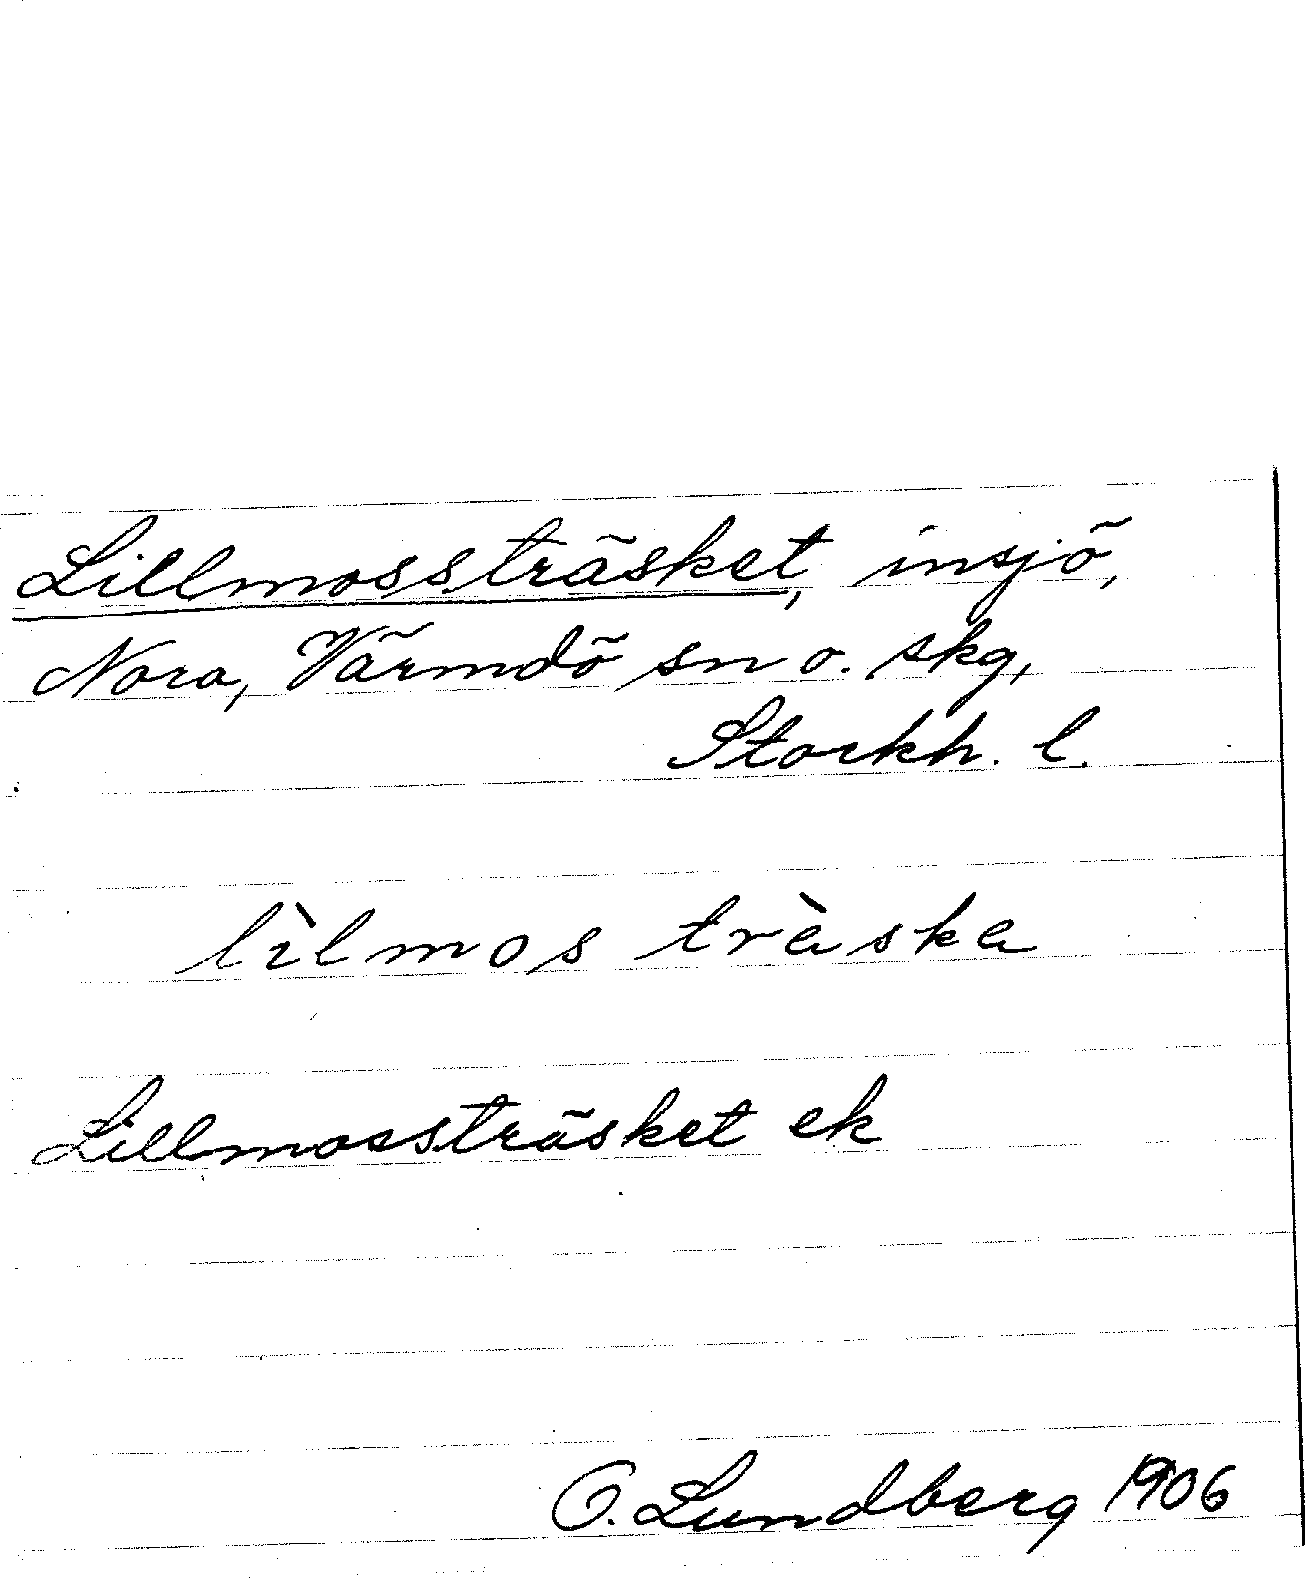 Lillmossträsket, insjö,
Nora, Värmdö sn o. skg,
Stockh. l.
lìlmos trὰska
Lillmossträsket ek
O. Lundberg 1906